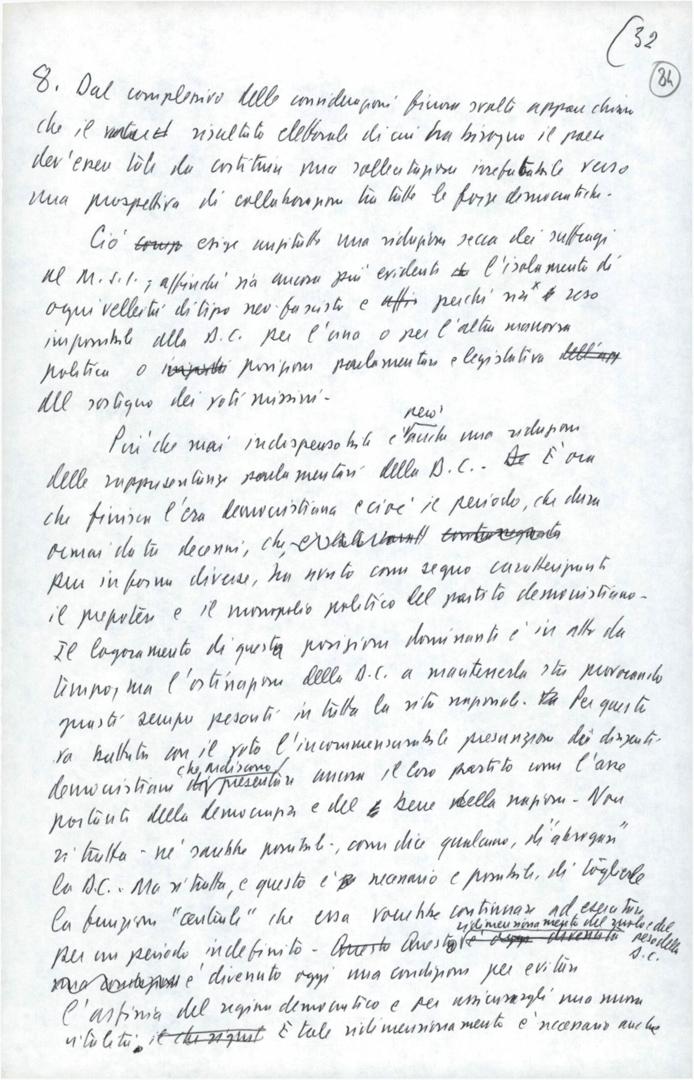 (32
84
8. Dal complesso delle considerazioni finora svolte appare chiaro
che il risultato elettorale di cui ha bisogno il paese
dev'essere tale da costituire una sollecitazione irrefutabile verso
una prospettiva di collaborazione tra tutte le forze democratiche.
Ciò comp esige anzitutto una riduzione secca dei suffragi
al M.S.I., affinché sia ancora più evidente l'isolamento di
ogni velleità di tipo neo-fascista e affin perché sia* reso
impossibile alla D.C. per l'una o per l'altra manovra
politica o imposta posizione parlamentare e legislativa dell'app
del sostegno dei voti missini.
però
Più che mai indispensabile è anche una riduzione
delle rappresentanze parlamentari della D.C. - È ora
che finisca l'era democristiana e cioè il periodo, che dura
ormai da tre decenni, che, contrassegnato
pur in forme diverse, ha avuto come segno caratterizzante
il prepotere e il monopolio politico del partito democristiano.
Il logoramento di questa posizione dominante è in atto da
tempo, ma l'ostinazione della D.C. a mantenerla sta provocando
guasti sempre pesanti in tutta la vita nazionale. Per questo
va battuta con il voto l'incommensurabile presunzione dei dirigenti
che ardiscono
democristiani di presentare ancora il loro partito come l'asse
portante della democrazia e del bene della nazione - Non
si tratta - né sarebbe possibile -, come dice qualcuno, di "abrogare"
la D.C. - Ma si tratta, e questo è necessario e possibile, di togliere
la funzione "centrale" che essa vorrebbe continuare ad esercitare
ridimensionamento del ruolo e del
peso della
D.C.
per un periodo indefinito - Questo Questo è oggi divenuto
una condizione è divenuto oggi una condizione per evitare
l'asfissia del regime democratico e per assicurargli una nuova
vitalità. il che signif E tale ridimensionamento è necessario anche